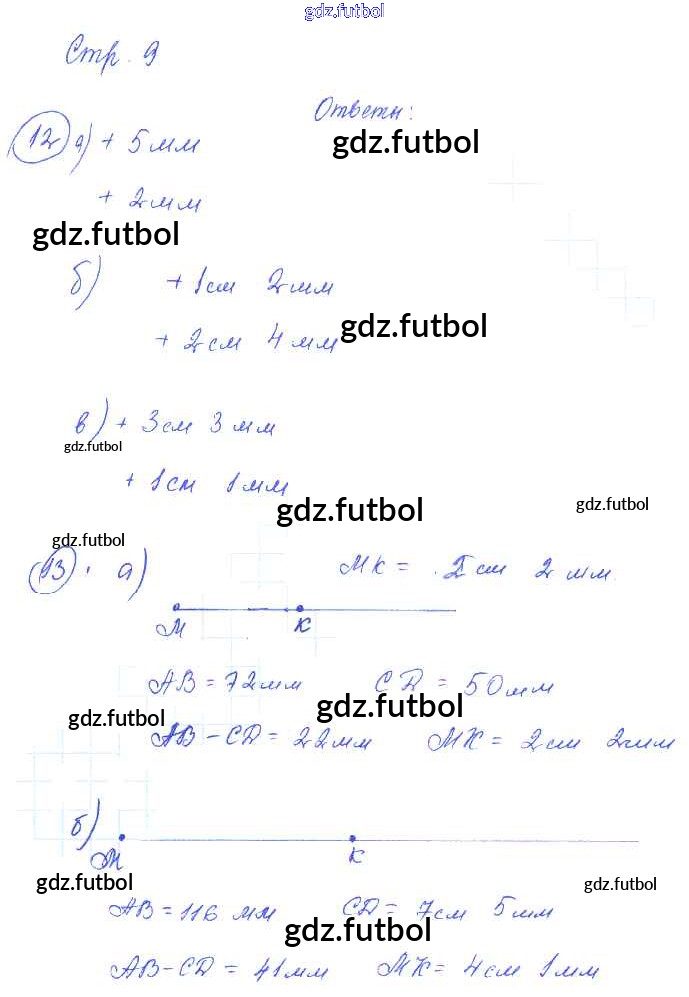 gdz.futbol
Стр. 9
Ответы:
12 а) + 5 мм
gdz.futbol
+ 2 мм
gdz.futbol
б) + 1 см 2 мм
+ 2 см 4 мм
gdz.futbol
в) + 3 см 3 мм
gdz.futbol
+ 1 см 1 мм
gdz.futbol
gdz.futbol
gdz.futbol
13. а) МК = 2 см 2 мм.
М К
АВ = 72 мм CD = 50 мм
gdz.futbol
gdz.futbol
АВ - CD = 22 мм МК = 2 см 2 мм
б)
М К
gdz.futbol
gdz.futbol
АВ = 116 мм CD = 7 см 5 мм
gdz.futbol
АВ - CD = 41 мм МК = 4 см 1 мм